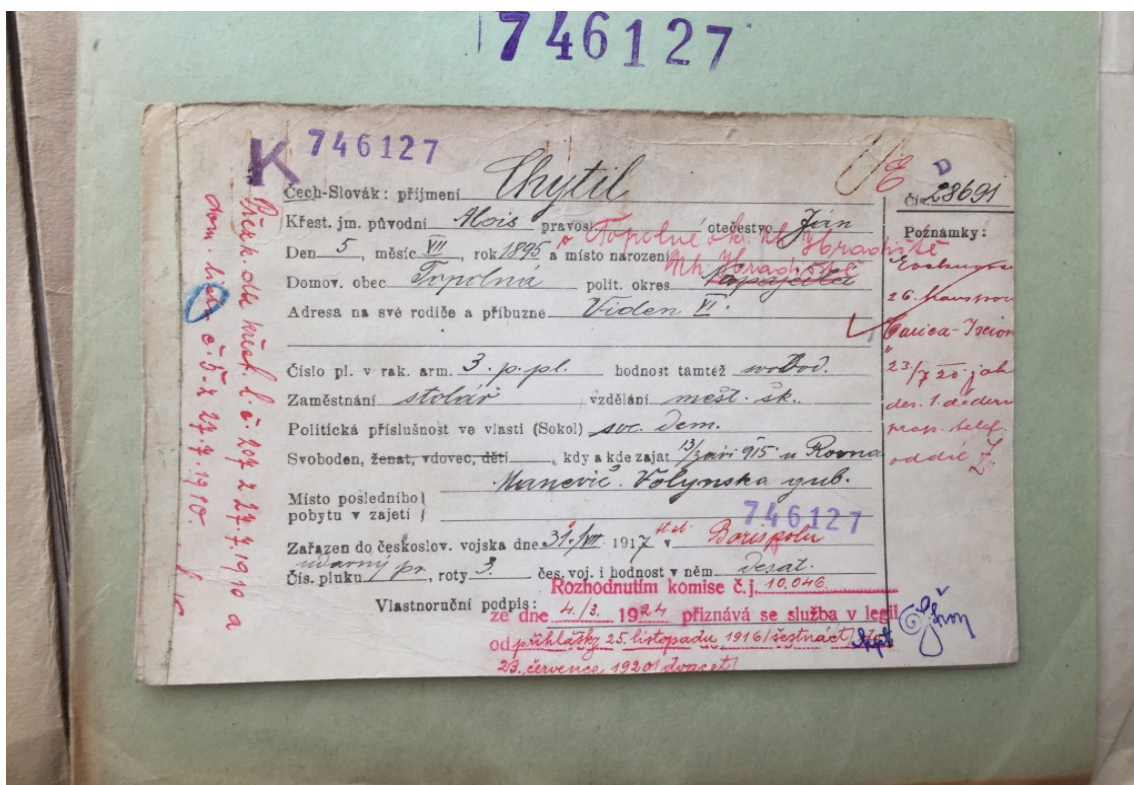 746127
K 746127
Čech-Slovák: příjmení Chytil
Křest. jm. původní Alois pravosl. otečestvo Ján
Topolné ok. Uh. Hradiště
Den 5, měsíc VII, rok 1895 a místo narození
Uh. Hradiště
Domov. obec Topolná polit. okres
Adresa na své rodiče a příbuzné Viden VI.
Číslo pl. v rak. arm. 3. p. pl. hodnost tamtéž svobod.
Zaměstnání stolář vzdělání měšt. šk.
Politická příslušnost ve vlasti (Sokol) soc. dem.
Svoboden, ženat, vdovec, děti, kdy a kde zajat 13/září 915 u Rovna
Místo posledního pobytu v zajetí Manevič. Volynska gub.
746127
Zařazen do českoslov. vojska dne 31/VII 1917 v Borispolu
Čís. pluku úderný pr., roty 3. čes. voj. i hodnost v něm desát.
Vlastnoruční podpis:
Rozhodnutím komise č.j. 10.046
ze dne 4./3. 1924 přiznává se služba v legii
od přihlášky 25. listopadu 1916 /šestnáct/ do
23. července 1920 /dvacet/
D
E
Čís. 28691
Poznámky:
26.
23/7 20 jak
des. 1. děder
prap. telef.
oddíl
Přezk. dle křest. l. č. 207 z 27.7.1910 a
dom. listu č. 5 z 27.7.1910.